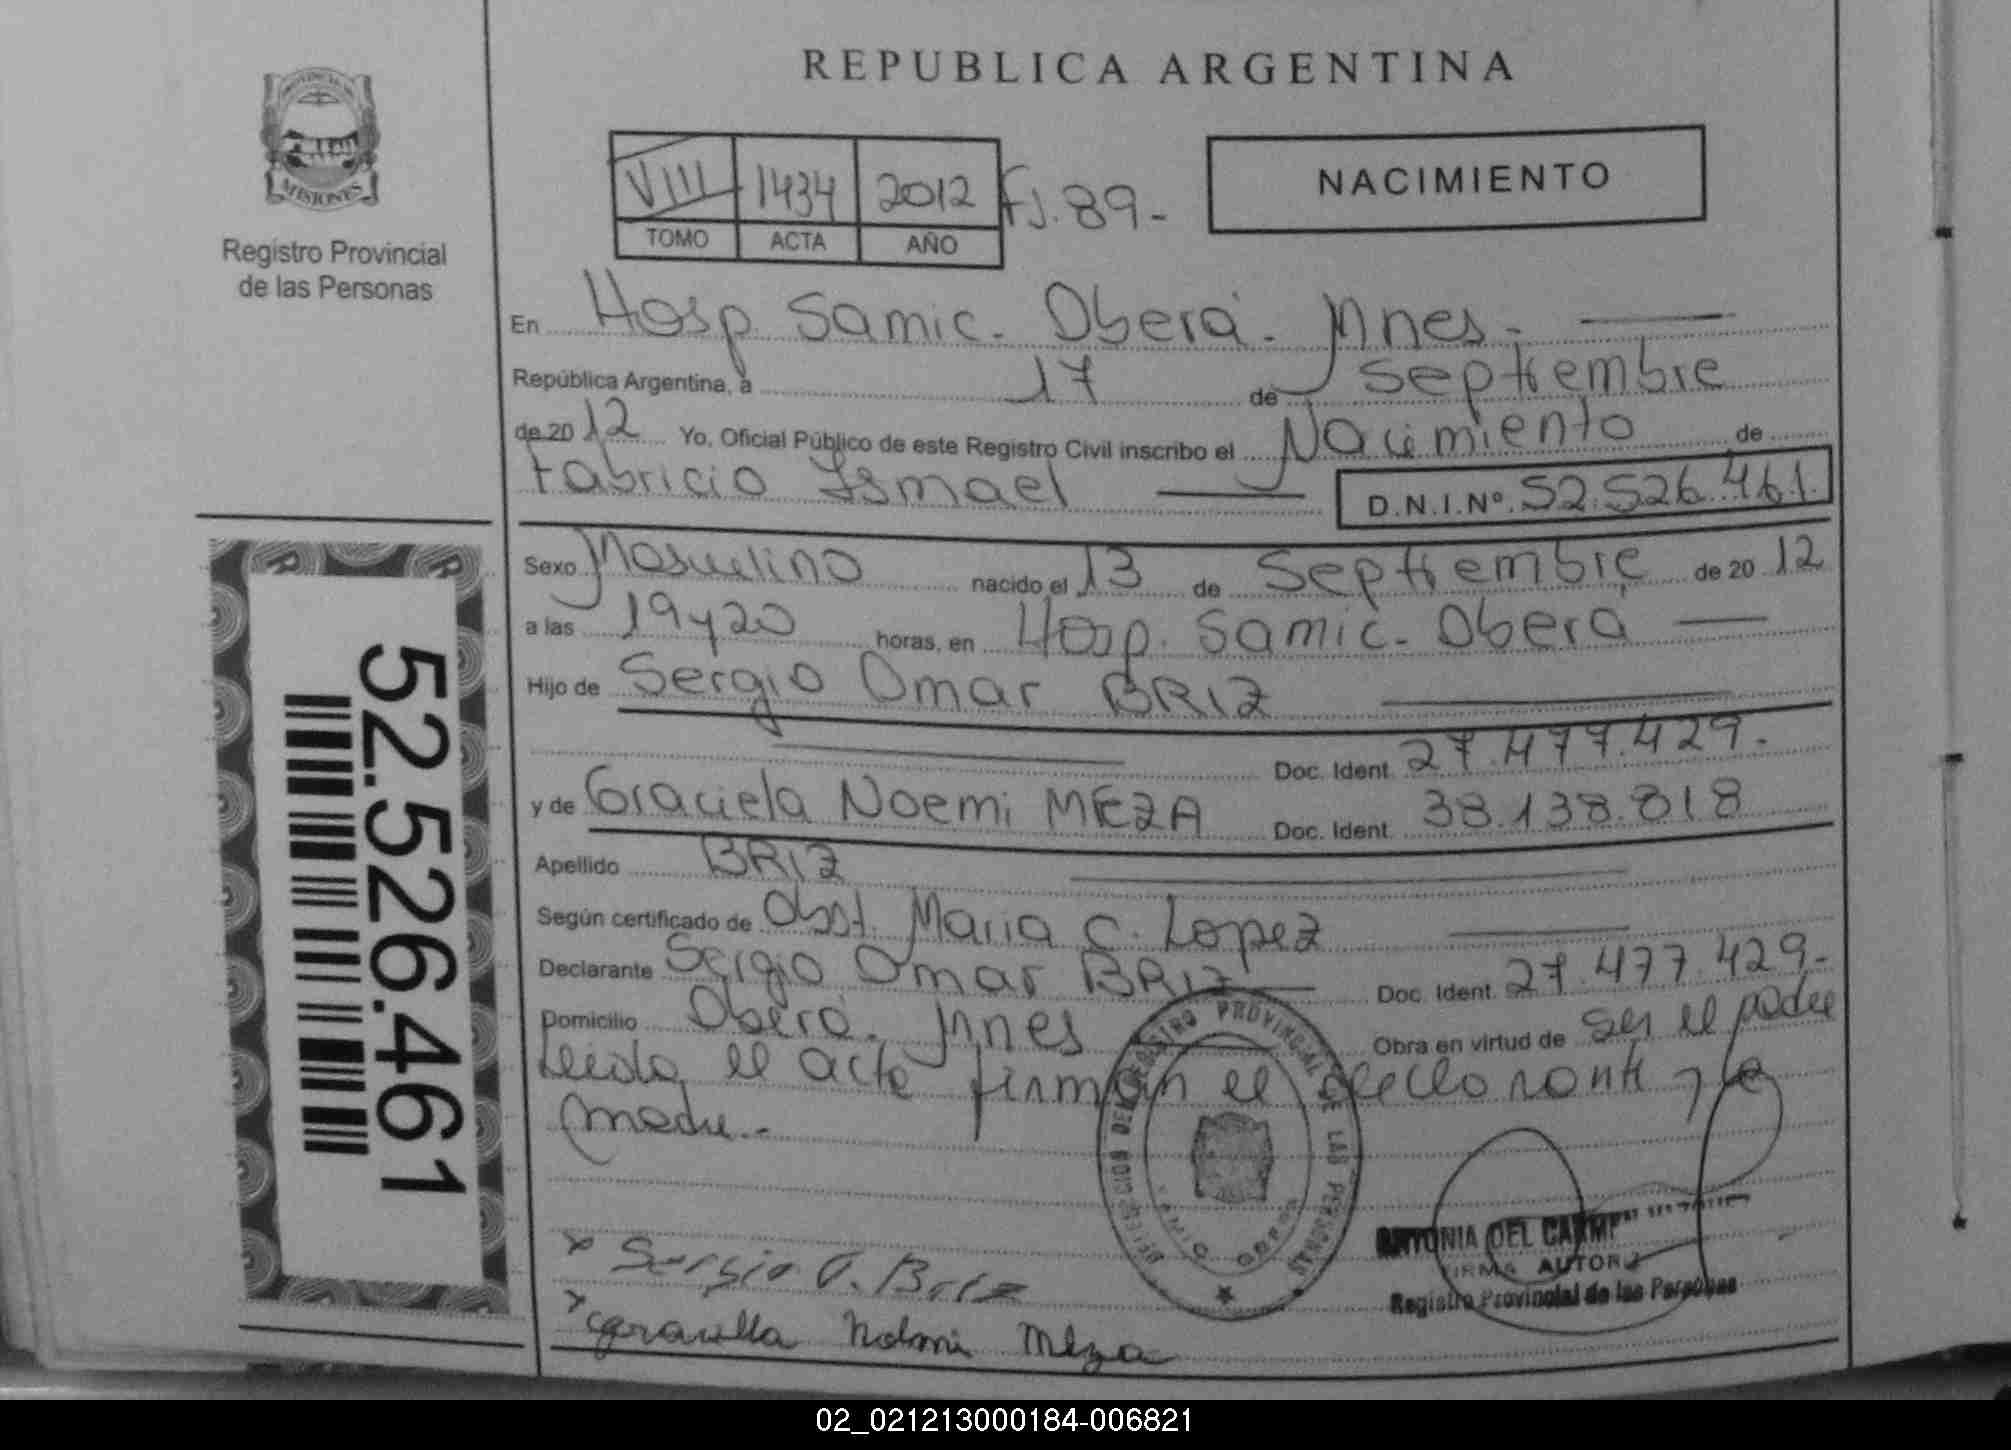 REPUBLICA ARGENTINA
PROVINCIA DE
MISIONES
Registro Provincial
de las Personas
VIII 1434 2012 Fj. 89-
TOMO ACTA AÑO
NACIMIENTO
En Hosp. Samic. Oberá. Mnes.
República Argentina, a 17 de Septiembre
de 2012 Yo, Oficial Público de este Registro Civil inscribo el Nacimiento de
Fabricio Ismael D.N.I.Nº. 52.526.461.
Sexo Masculino nacido el 13 de Septiembre de 2012
a las 19y20 horas, en Hosp. Samic. Oberá
Hijo de Sergio Omar BRIZ
Doc. Ident. 27.477.429.
y de Graciela Noemi MEZA Doc. Ident. 38.138.818
Apellido BRIZ
Según certificado de Obst. Maria C. Lopez
Declarante Sergio Omar BRIZ Doc. Ident. 27.477.429.-
Domicilio Oberá. Mnes Obra en virtud de ser el padre
Leida el acta firman el declarante y la
madre.-
52.526.461
DEL REGISTRO PROVINCIAL DE LAS PERSONAS
x Sergio O. Briz
x Graciela Noemi Meza
ANTONIA DEL CARMEN
FIRMA AUTORIZ
Registro Provincial de las Personas
02_021213000184-006821